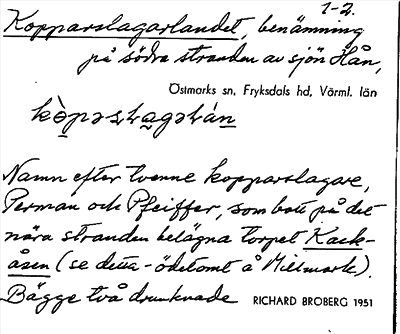 1-2.
Kopparslagarlandet, benämning
på södra stranden av sjön Hån,
Östmarks sn, Fryksdals hd, Värml. län
Namn efter tvenne kopparslagare,
Perman och Pfeiffer, som bott på det
nära stranden belägna torpet Kack-
åsen (se detta - ödetomt å Millmark).
Bägge två drunknade RICHARD BROBERG 1951